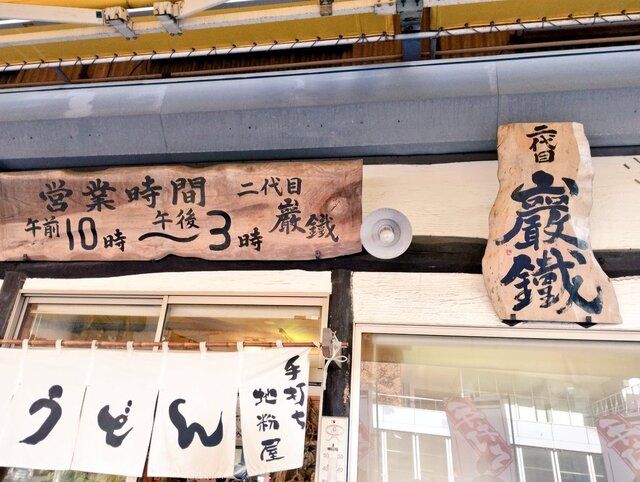 営業時間
午前10時〜午後3時
二代目
巖鐵
二代目
巖鐵
うどん
手打ち
地粉屋